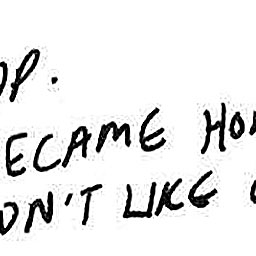 OP.
ECAME HO
ON'T LIKE